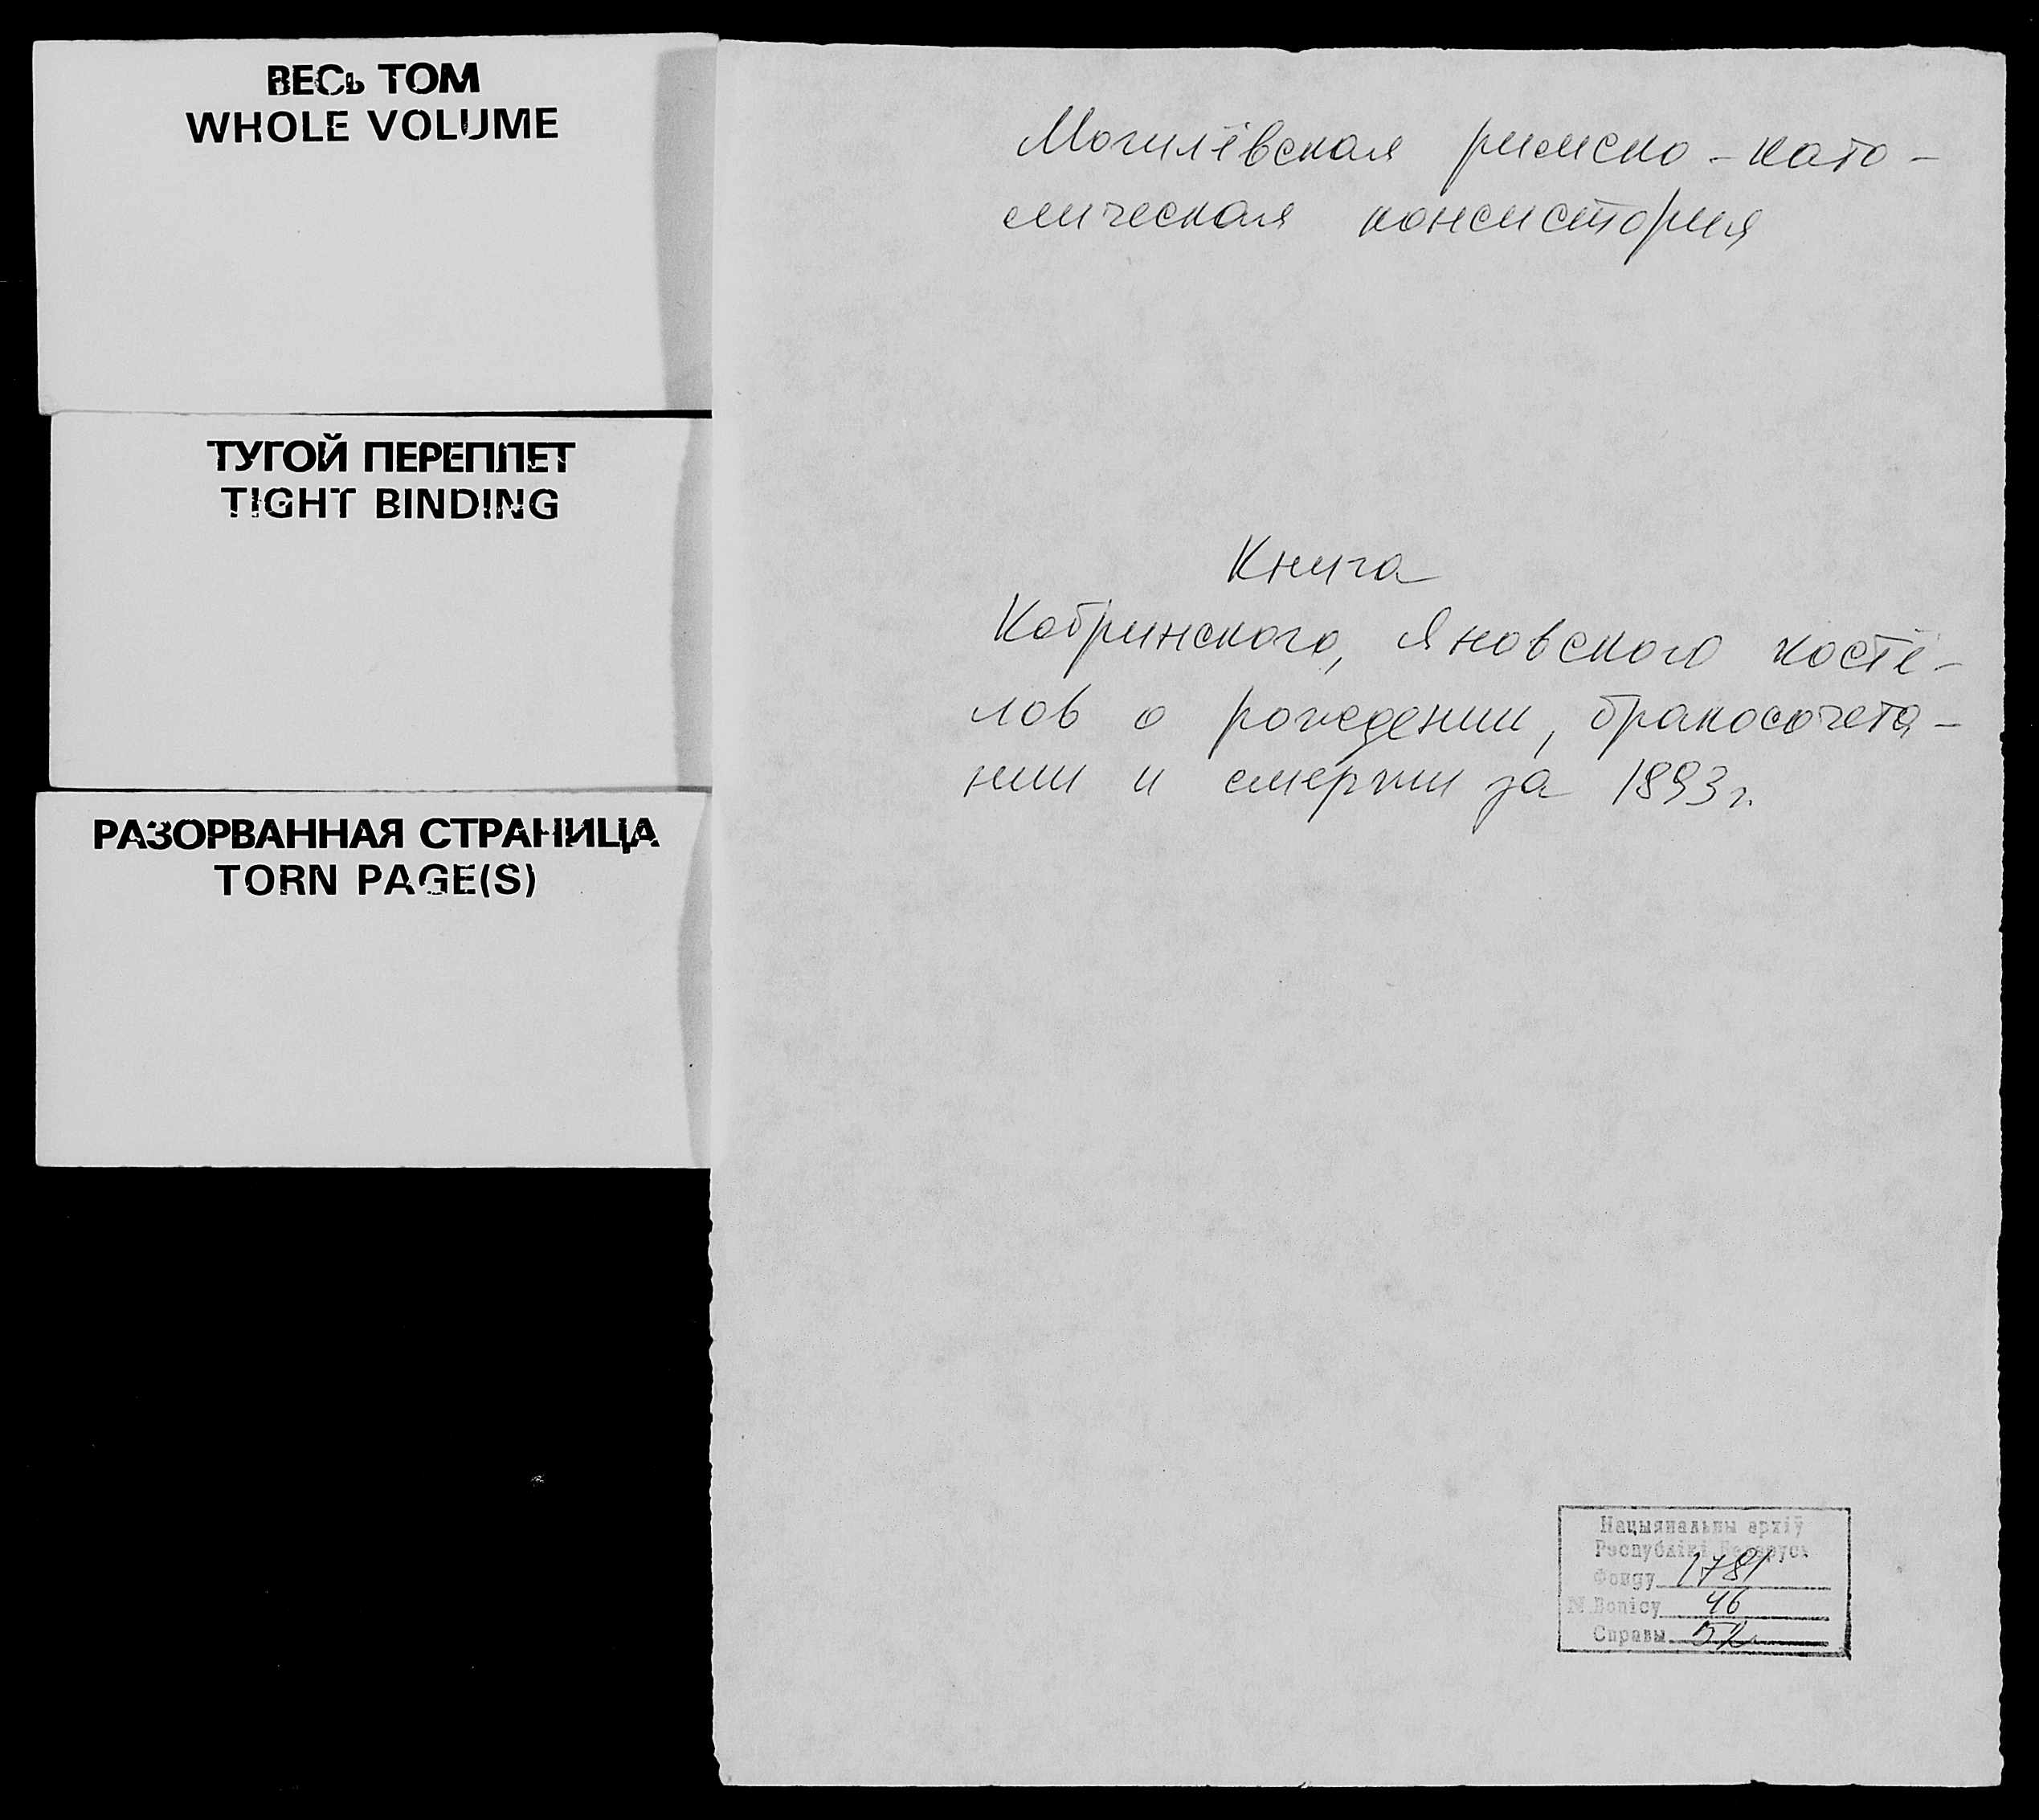 ВЕСЬ ТОМ
WHOLE VOLUME
ТУГОЙ ПЕРЕПЛЕТ
TIGHT BINDING
РАЗОРВАННАЯ СТРАНИЦА
TORN PAGE(S)
Могилёвская римско-като-
лическая консистория
Книга
Кобринского, Яновского костё-
лов о рождении, бракосочета-
нии и смерти за 1893 г.
Нацыянальны архіў
Рэспублікі Беларусь
Фонду 1781
№ Вопісу 46
Справы 52